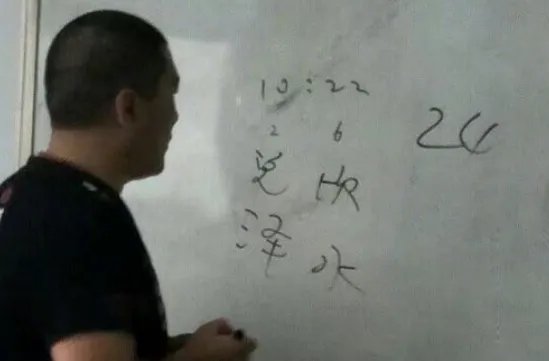 10:22 24
2 6
兑 坎
泽 水